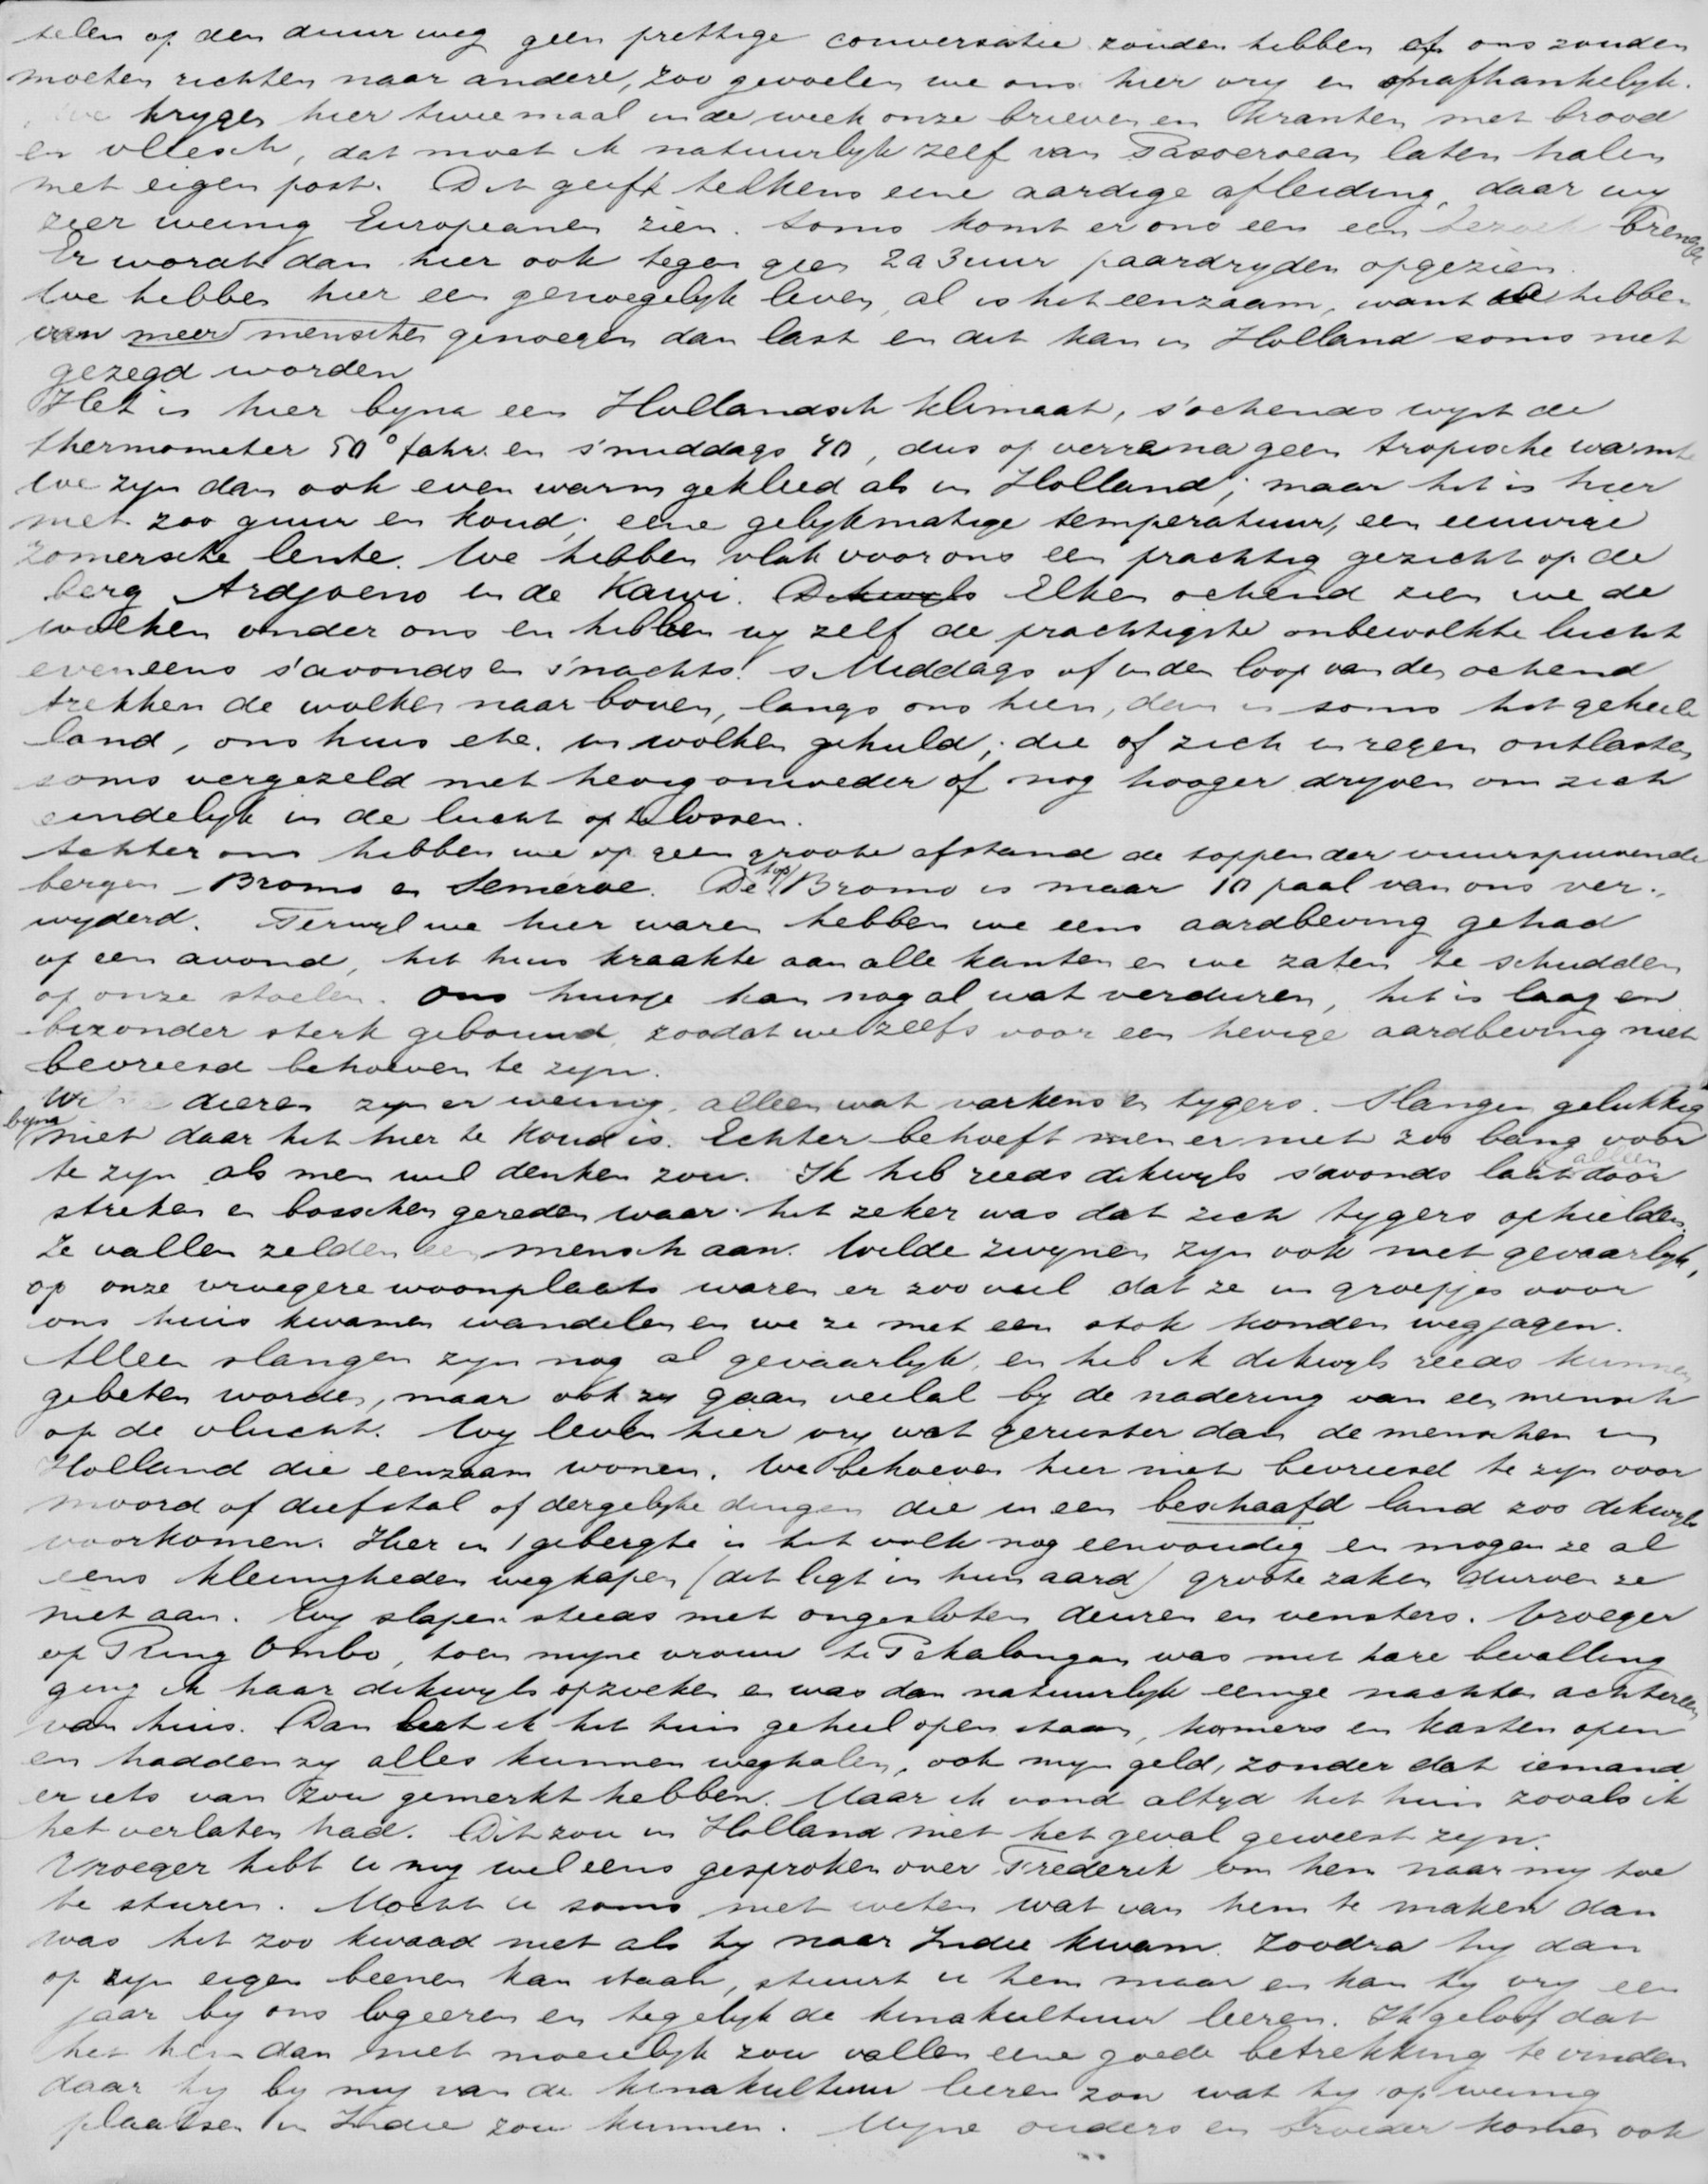 selen op den duur weg geen prettige conversatie zouden hebben of ons zouden
moeten richten naar andere, zoo gevoelen we ons hier vry en onafhankelyk.
we krygen hier tweemaal in de week onze brieven en kranten met brood
en vleesch, dat moet ik natuurlyk zelf van Pasoeroean laten halen
met eigen post. Dit geeft telkens eene aardige afleiding, daar wy
zeer weinig Europeanen zien. Soms komt er ons een een bezoek brengen
Er wordt dan hier ook tegen geen 2 a 3 uur paardryden opgezien.
We hebben hier een genoegelyk leven, al is het eenzaam, want we hebben
van meer menschen genoegen dan last en dit kan in Holland soms niet
gezegd worden
Het is hier byna een Hollandsch klimaat, s'ochends wyst de
thermometer 50° fahr. en s'middags 70, dus op verre na geen tropische warmte
We zyn dan ook even warm gekleed als in Holland; maar het is hier
niet zoo guur en koud; eene gelykmatige temperatuur, een eeuwige
zomersche lente. We hebben vlak voor ons een prachtig gezicht op de
berg Ardjoeno en de Kawi. Dikwyls Elken ochend zien we de
wolken onder ons en hebben wy zelf de prachtigste onbewolkte lucht
eveneens s'avonds en s'nachts! s Middags of in den loop van den ochend
trekken de wolken naar boven, langs ons heen, dan is soms het geheele
land, ons huis etc. in wolken gehuld; die of zich in regen ontlasten
soms vergezeld met hevig onweder of nog hooger dryven om zich
eindelyk in de lucht op te lossen.
Achter ons hebben we op geen groote afstand de toppen der vuurspuwende
bergen Bromo en Semeroe. De top Bromo is maar 10 paal van ons ver-
wyderd. Terwyl we hier waren hebben we eens aardbeving gehad
op een avond, het huis kraakte aan alle kanten en we zaten te schudden
op onze stoelen. Ons huisje kan nog al wat verduren, het is laag en
bizonder sterk gebouwd, zoodat we zelfs voor een hevige aardbeving niet
bevreesd behoeven te zyn.
Wilde dieren zyn er weinig, alleen wat varkens en tygers. Slangen gelukkig
byna niet daar het hier te koud is. Echter behoeft men er niet zoo bang voor
te zyn als men wel denken zou. Ik heb reeds dikwyls s'avonds laat alleen door
streken en bosschen gereden waar het zeker was dat zich tygers ophielden.
Ze vallen zelden een mensch aan. Wilde zwynen zyn ook niet gevaarlyk,
op onze vroegere woonplaats waren er zoo veel dat ze in groepjes voor
ons huis kwamen wandelen en we ze met een stok konden wegjagen.
Alleen slangen zyn nog al gevaarlyk, en heb ik dikwyls reeds kunnen
gebeten worden, maar ook zy gaan veelal by de nadering van een mensch
op de vlucht. Wy leven hier vry wat geruster dan de menschen in
Holland die eenzaam wonen. We behoeven hier niet bevreesd te zyn voor
moord of diefstal of dergelyke dingen die in een beschaafd land zoo dikwyls
voorkomen. Hier in 't gebergte is het volk nog eenvoudig en mogen ze al
eens kleinigheden wegkapen (dit ligt in hun aard) groote zaken durven ze
niet aan. Wy slapen steeds met ongesloten deuren en vensters. Vroeger
op Pring Ombo, toen myne vrouw te Pekalongan was met hare bevalling
ging ik haar dikwyls opzoeken en was dan natuurlyk eenige nachten achtereen
van huis. Dan liet ik het huis geheel open staan, kamers en kasten open
en hadden zy alles kunnen weghalen, ook myn geld, zonder dat iemand
er iets van zou gemerkt hebben. Maar ik vond altyd het huis zooals ik
het verlaten had. Dit zou in Holland niet het geval geweest zyn.
Vroeger hebt u my wel eens gesproken over Frederik om hem naar my toe
te sturen. Mocht u soms niet weten wat van hem te maken dan
was het zoo kwaad niet als hy naar Indie kwam. Zoodra hy dan
op zyn eigen beenen kan staan, stuurt u hem maar en kan hy vry een
jaar by ons logeeren en tegelyk de kinakultuur leeren. Ik geloof dat
het hem dan niet moeielyk zou vallen eene goede betrekking te vinden
daar hy by my van de kinakultuur leeren zou wat hy op weinig
plaatsen in Indie zou kunnen. Myne ouders en broeder komen ook